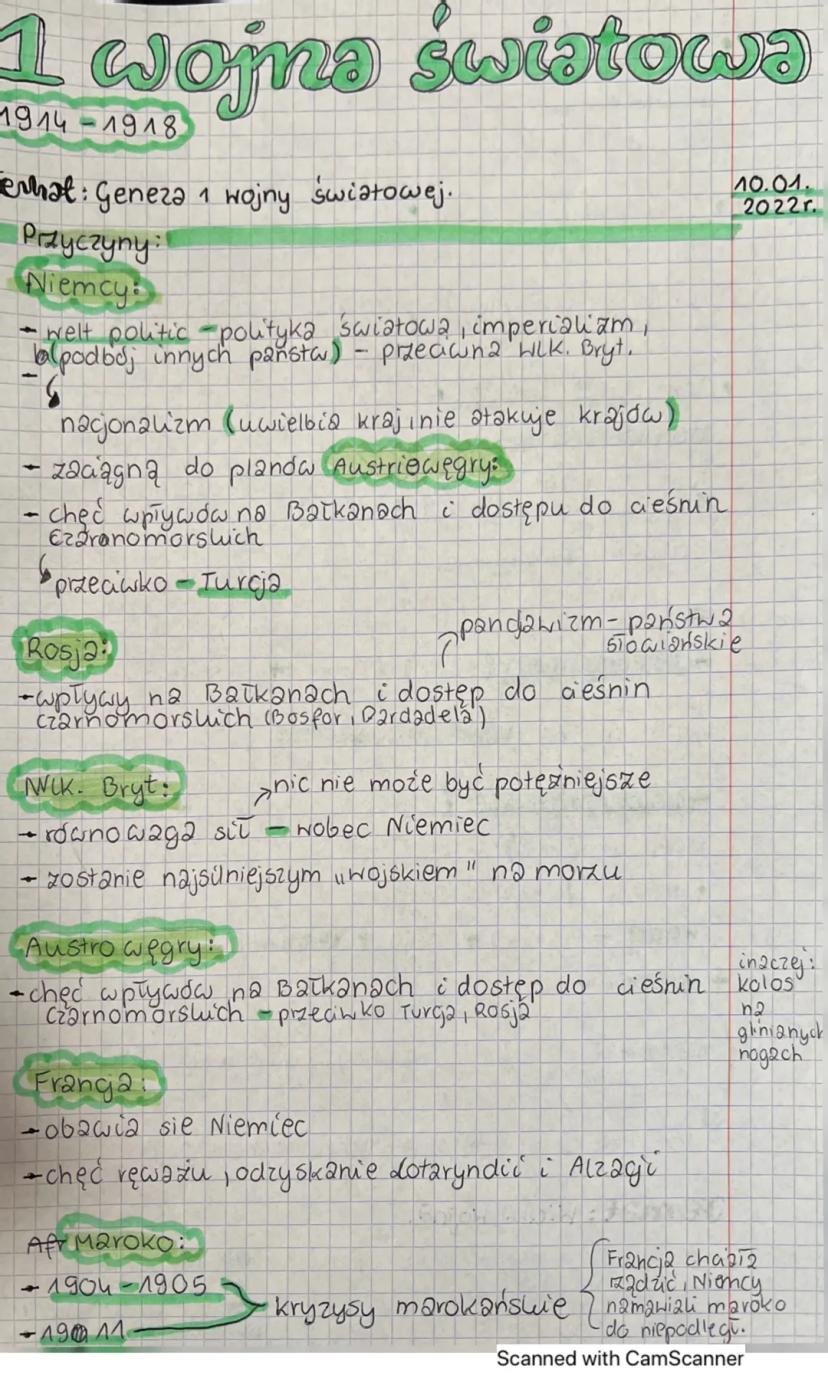 1 wojna światowa
1914-1918
emat: Geneza 1 wojny światowej.
10.01.
2022r.
Przyczyny:
Niemcy:
- welt politic - polityka światowa, imperializm,
(podbój innych państw) - przeciwna Wlk. Bryt.
-
nacjonalizm (uwielbia kraj, nie atakuje krajów)
- zaciągną do planów Austriowęgry:
- chęć wpływów na Bałkanach i dostępu do cieśnin
czaranomorskich
przeciwko - Turcja
panslawizm - państwa
słowiańskie
Rosja:
- wpływy na Bałkanach i dostęp do cieśnin
czarnomorskich (Bosfor, Dardadela)
Wlk. Bryt:
nic nie może być potężniejsze
- równowaga sił - wobec Niemiec
- zostanie najsilniejszym "wojskiem" na morzu
Austro węgry:
- chęć wpływów na Bałkanach i dostęp do cieśnin
czarnomorskich - przeciwko Turcja, Rosja
inaczej:
kolos
na
glinianych
nogach
Francja:
- obawia sie Niemiec
- chęć reważu, odzyskanie i Alzacji
Afr Maroko:
- 1904-1905
- 1911
kryzysy marokańskie
Francja chciała
rządzić, Niemcy
namawiali maroko
do niepodległ.
Scanned with CamScanner